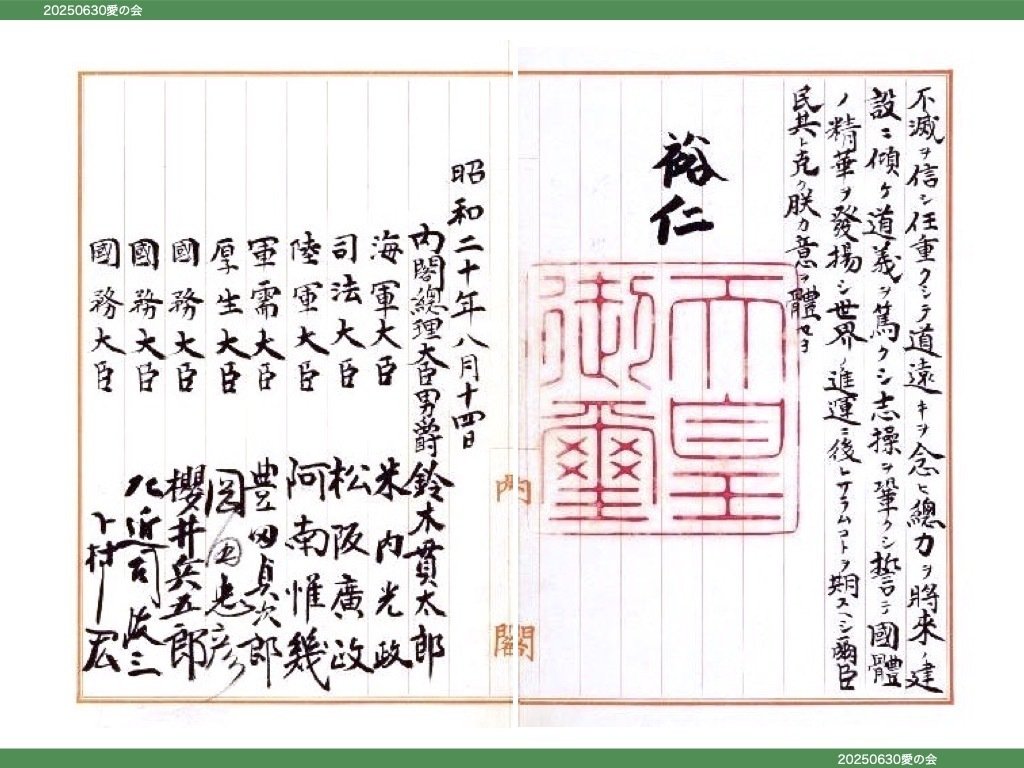 20250630愛の会
不滅ヲ信シ任重クシテ道遠キヲ念ヒ總力ヲ將來ノ建
設ニ傾ケ道義ヲ篤クシ志操ヲ鞏クシ誓テ國體
ノ精華ヲ發揚シ世界ノ進運ニ後レサラムコトヲ期スヘシ爾臣
民其レ克ク朕カ意ヲ體セヨ
裕仁
天皇
御璽
内閣
昭和二十年八月十四日
内閣總理大臣男爵 鈴木貫太郎
海軍大臣 米内光政
司法大臣 松阪廣政
陸軍大臣 阿南惟幾
軍需大臣 豊田貞次郎
厚生大臣 岡田忠彦
國務大臣 櫻井兵五郎
國務大臣 左近司政三
國務大臣 下村宏
20250630愛の会